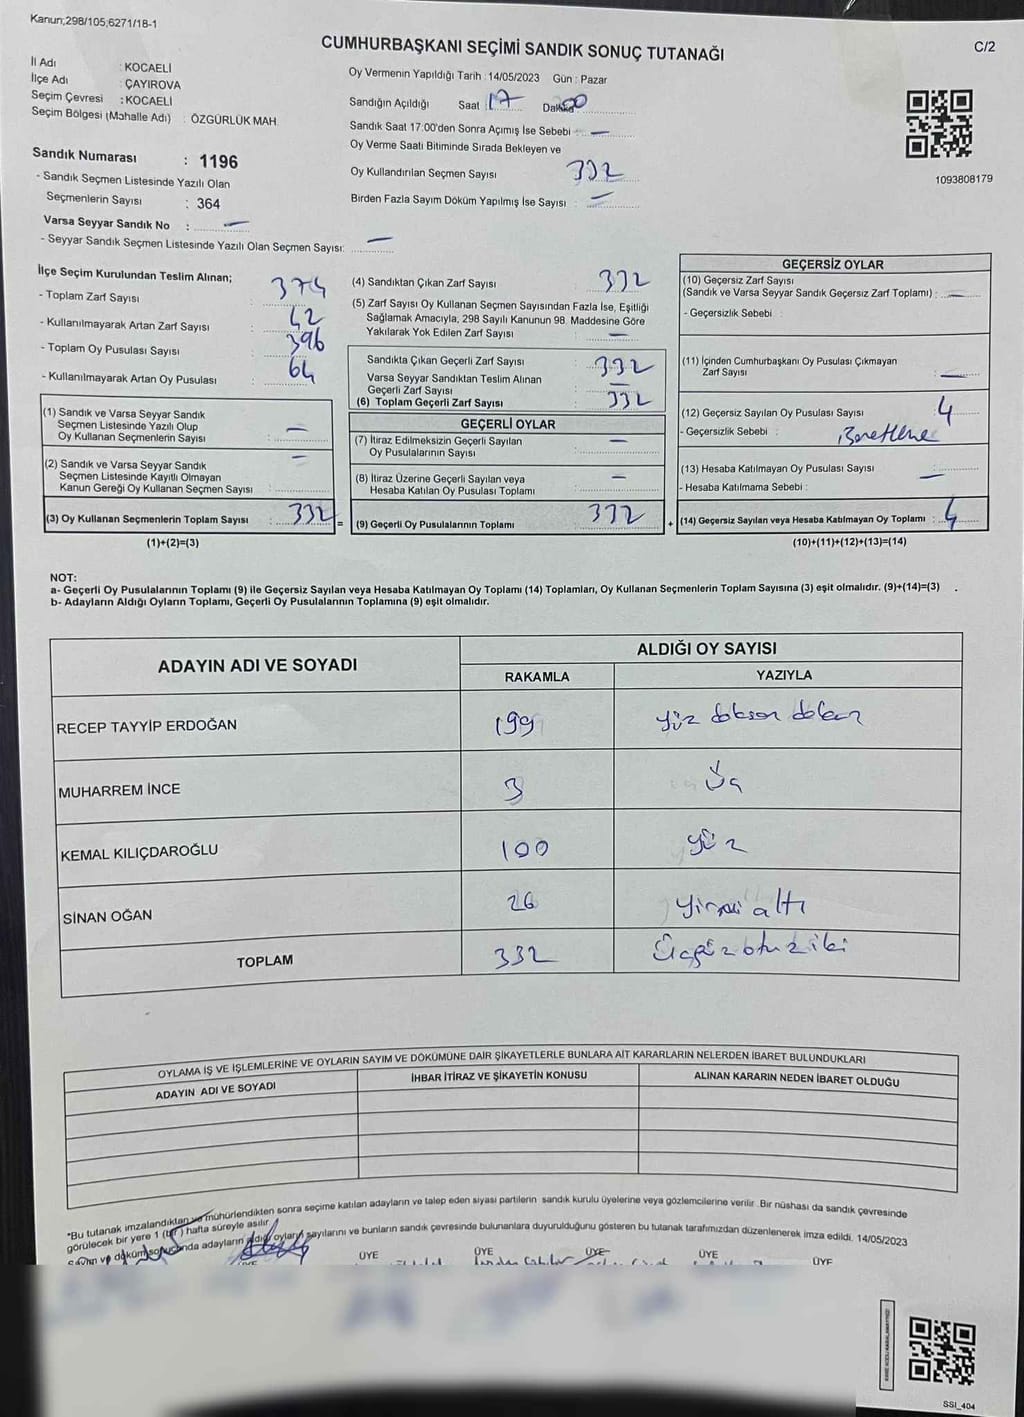 Kanun;298/105,6271/18-1
CUMHURBAŞKANI SEÇİMİ SANDIK SONUÇ TUTANAĞI
C/2
İl Adı : KOCAELİ
İlçe Adı : ÇAYIROVA
Seçim Çevresi : KOCAELİ
Seçim Bölgesi (Mahalle Adı) : ÖZGÜRLÜK MAH.
Sandık Numarası : 1196
- Sandık Seçmen Listesinde Yazılı Olan
Seçmenlerin Sayısı : 364
Varsa Seyyar Sandık No : —
- Seyyar Sandık Seçmen Listesinde Yazılı Olan Seçmen Sayısı: —
Oy Vermenin Yapıldığı Tarih : 14/05/2023 Gün : Pazar
Sandığın Açıldığı Saat : 17 Dakika 00
Sandık Saat 17:00'den Sonra Açımış İse Sebebi : —
Oy Verme Saati Bitiminde Sırada Bekleyen ve
Oy Kullandırılan Seçmen Sayısı 332
Birden Fazla Sayım Döküm Yapılmış İse Sayısı : —
1093808179
İlçe Seçim Kurulundan Teslim Alınan;
- Toplam Zarf Sayısı : 374
- Kullanılmayarak Artan Zarf Sayısı : 42
- Toplam Oy Pusulası Sayısı : 396
- Kullanılmayarak Artan Oy Pusulası : 64
(1) Sandık ve Varsa Seyyar Sandık
Seçmen Listesinde Yazılı Olup
Oy Kullanan Seçmenlerin Sayısı : —
(2) Sandık ve Varsa Seyyar Sandık
Seçmen Listesinde Kayıtlı Olmayan
Kanun Gereği Oy Kullanan Seçmen Sayısı : —
(3) Oy Kullanan Seçmenlerin Toplam Sayısı : 332 =
(1)+(2)=(3)
(4) Sandıktan Çıkan Zarf Sayısı : 332
(5) Zarf Sayısı Oy Kullanan Seçmen Sayısından Fazla İse, Eşitliği
Sağlamak Amacıyla, 298 Sayılı Kanunun 98. Maddesine Göre
Yakılarak Yok Edilen Zarf Sayısı : —
Sandıkta Çıkan Geçerli Zarf Sayısı : 332
Varsa Seyyar Sandıktan Teslim Alınan
Geçerli Zarf Sayısı : —
(6) Toplam Geçerli Zarf Sayısı : 332
GEÇERLİ OYLAR
(7) İtiraz Edilmeksizin Geçerli Sayılan
Oy Pusulalarının Sayısı : —
(8) İtiraz Üzerine Geçerli Sayılan veya
Hesaba Katılan Oy Pusulası Toplamı : —
(9) Geçerli Oy Pusulalarının Toplamı : 332 +
GEÇERSİZ OYLAR
(10) Geçersiz Zarf Sayısı
(Sandık ve Varsa Seyyar Sandık Geçersiz Zarf Toplamı) : —
- Geçersizlik Sebebi :
(11) İçinden Cumhurbaşkanı Oy Pusulası Çıkmayan
Zarf Sayısı : —
(12) Geçersiz Sayılan Oy Pusulası Sayısı : 4
- Geçersizlik Sebebi :
(13) Hesaba Katılmayan Oy Pusulası Sayısı : —
- Hesaba Katılmama Sebebi :
(14) Geçersiz Sayılan veya Hesaba Katılmayan Oy Toplamı : 4
(10)+(11)+(12)+(13)=(14)
NOT:
a- Geçerli Oy Pusulalarının Toplamı (9) ile Geçersiz Sayılan veya Hesaba Katılmayan Oy Toplamı (14) Toplamları, Oy Kullanan Seçmenlerin Toplam Sayısına (3) eşit olmalıdır. (9)+(14)=(3) .
b- Adayların Aldığı Oyların Toplamı, Geçerli Oy Pusulalarının Toplamına (9) eşit olmalıdır.
ADAYIN ADI VE SOYADI
ALDIĞI OY SAYISI
RAKAMLA YAZIYLA
RECEP TAYYİP ERDOĞAN 199 yüz doksan dokuz
MUHARREM İNCE 3 Üç
KEMAL KILIÇDAROĞLU 100 yüz
SİNAN OĞAN 26 yirmi altı
TOPLAM 332 Üçyüz otuz iki
OYLAMA İŞ VE İŞLEMLERİNE VE OYLARIN SAYIM VE DÖKÜMÜNE DAİR ŞİKAYETLERLE BUNLARA AİT KARARLARIN NELERDEN İBARET BULUNDUKLARI
ADAYIN ADI VE SOYADI İHBAR İTİRAZ VE ŞİKAYETİN KONUSU ALINAN KARARIN NEDEN İBARET OLDUĞU
*Bu tutanak imzalandıktan ve mühürlendikten sonra seçime katılan adayların ve talep eden siyasi partilerin sandık kurulu üyelerine veya gözlemcilerine verilir. Bir nüshası da sandık çevresinde
görülecek bir yere 1 (bir) hafta süreyle asılır.
Sayım ve döküm sonucunda adayların aldığı oyların sayılarını ve bunların sandık çevresinde bulunanlara duyurulduğunu gösteren bu tutanak tarafımızdan düzenlenerek imza edildi. 14/05/2023
ÜYE ÜYE ÜYE ÜYE ÜYE
SSI_404